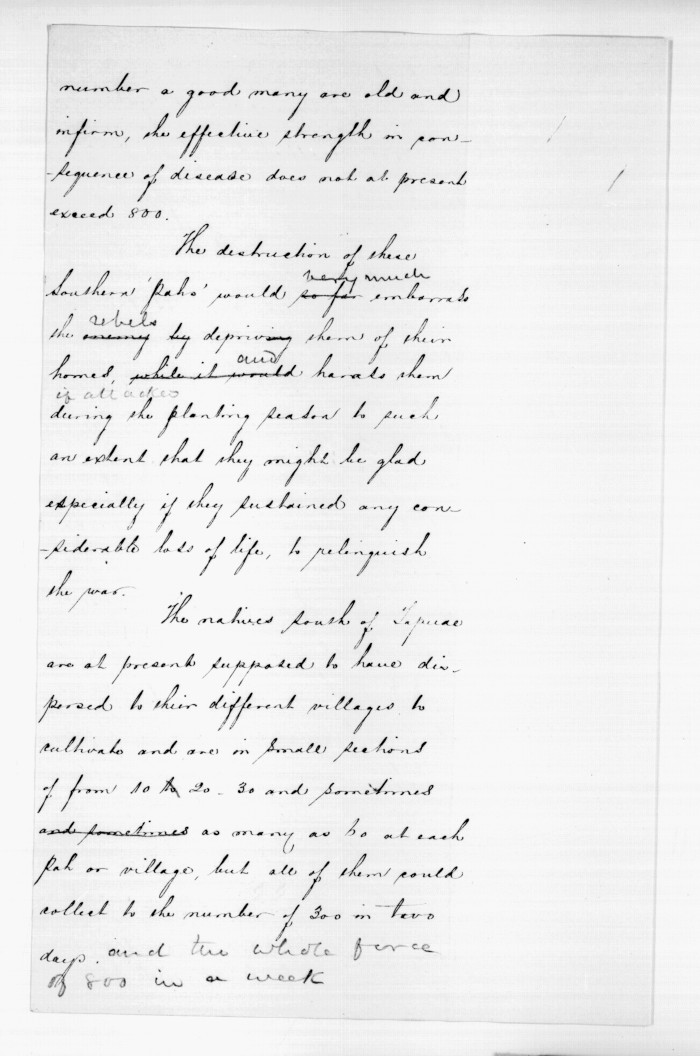 number a good many are old and
infirm, the effective strength in con-
-sequence of disease does not at present
exceed 800.
The destruction of these
very much
Southern 'pahs' would so far embarrass
rebels
the enemy by depriving them of their
and
homes, while it would harass them
if attacked
during the planting season to such
an extent that they might be glad
especially if they sustained any con-
-siderable loss of life, to relinquish
the war.
The natives south of Tapuae
are at present supposed to have dis-
persed to their different villages to
cultivate and are in small sections
of from 10 to 20 - 30 and sometimes
and sometimes as many as 60 at each
pah or village, but all of them could
collect to the number of 300 in two
days. and the whole force
of 800 in a week